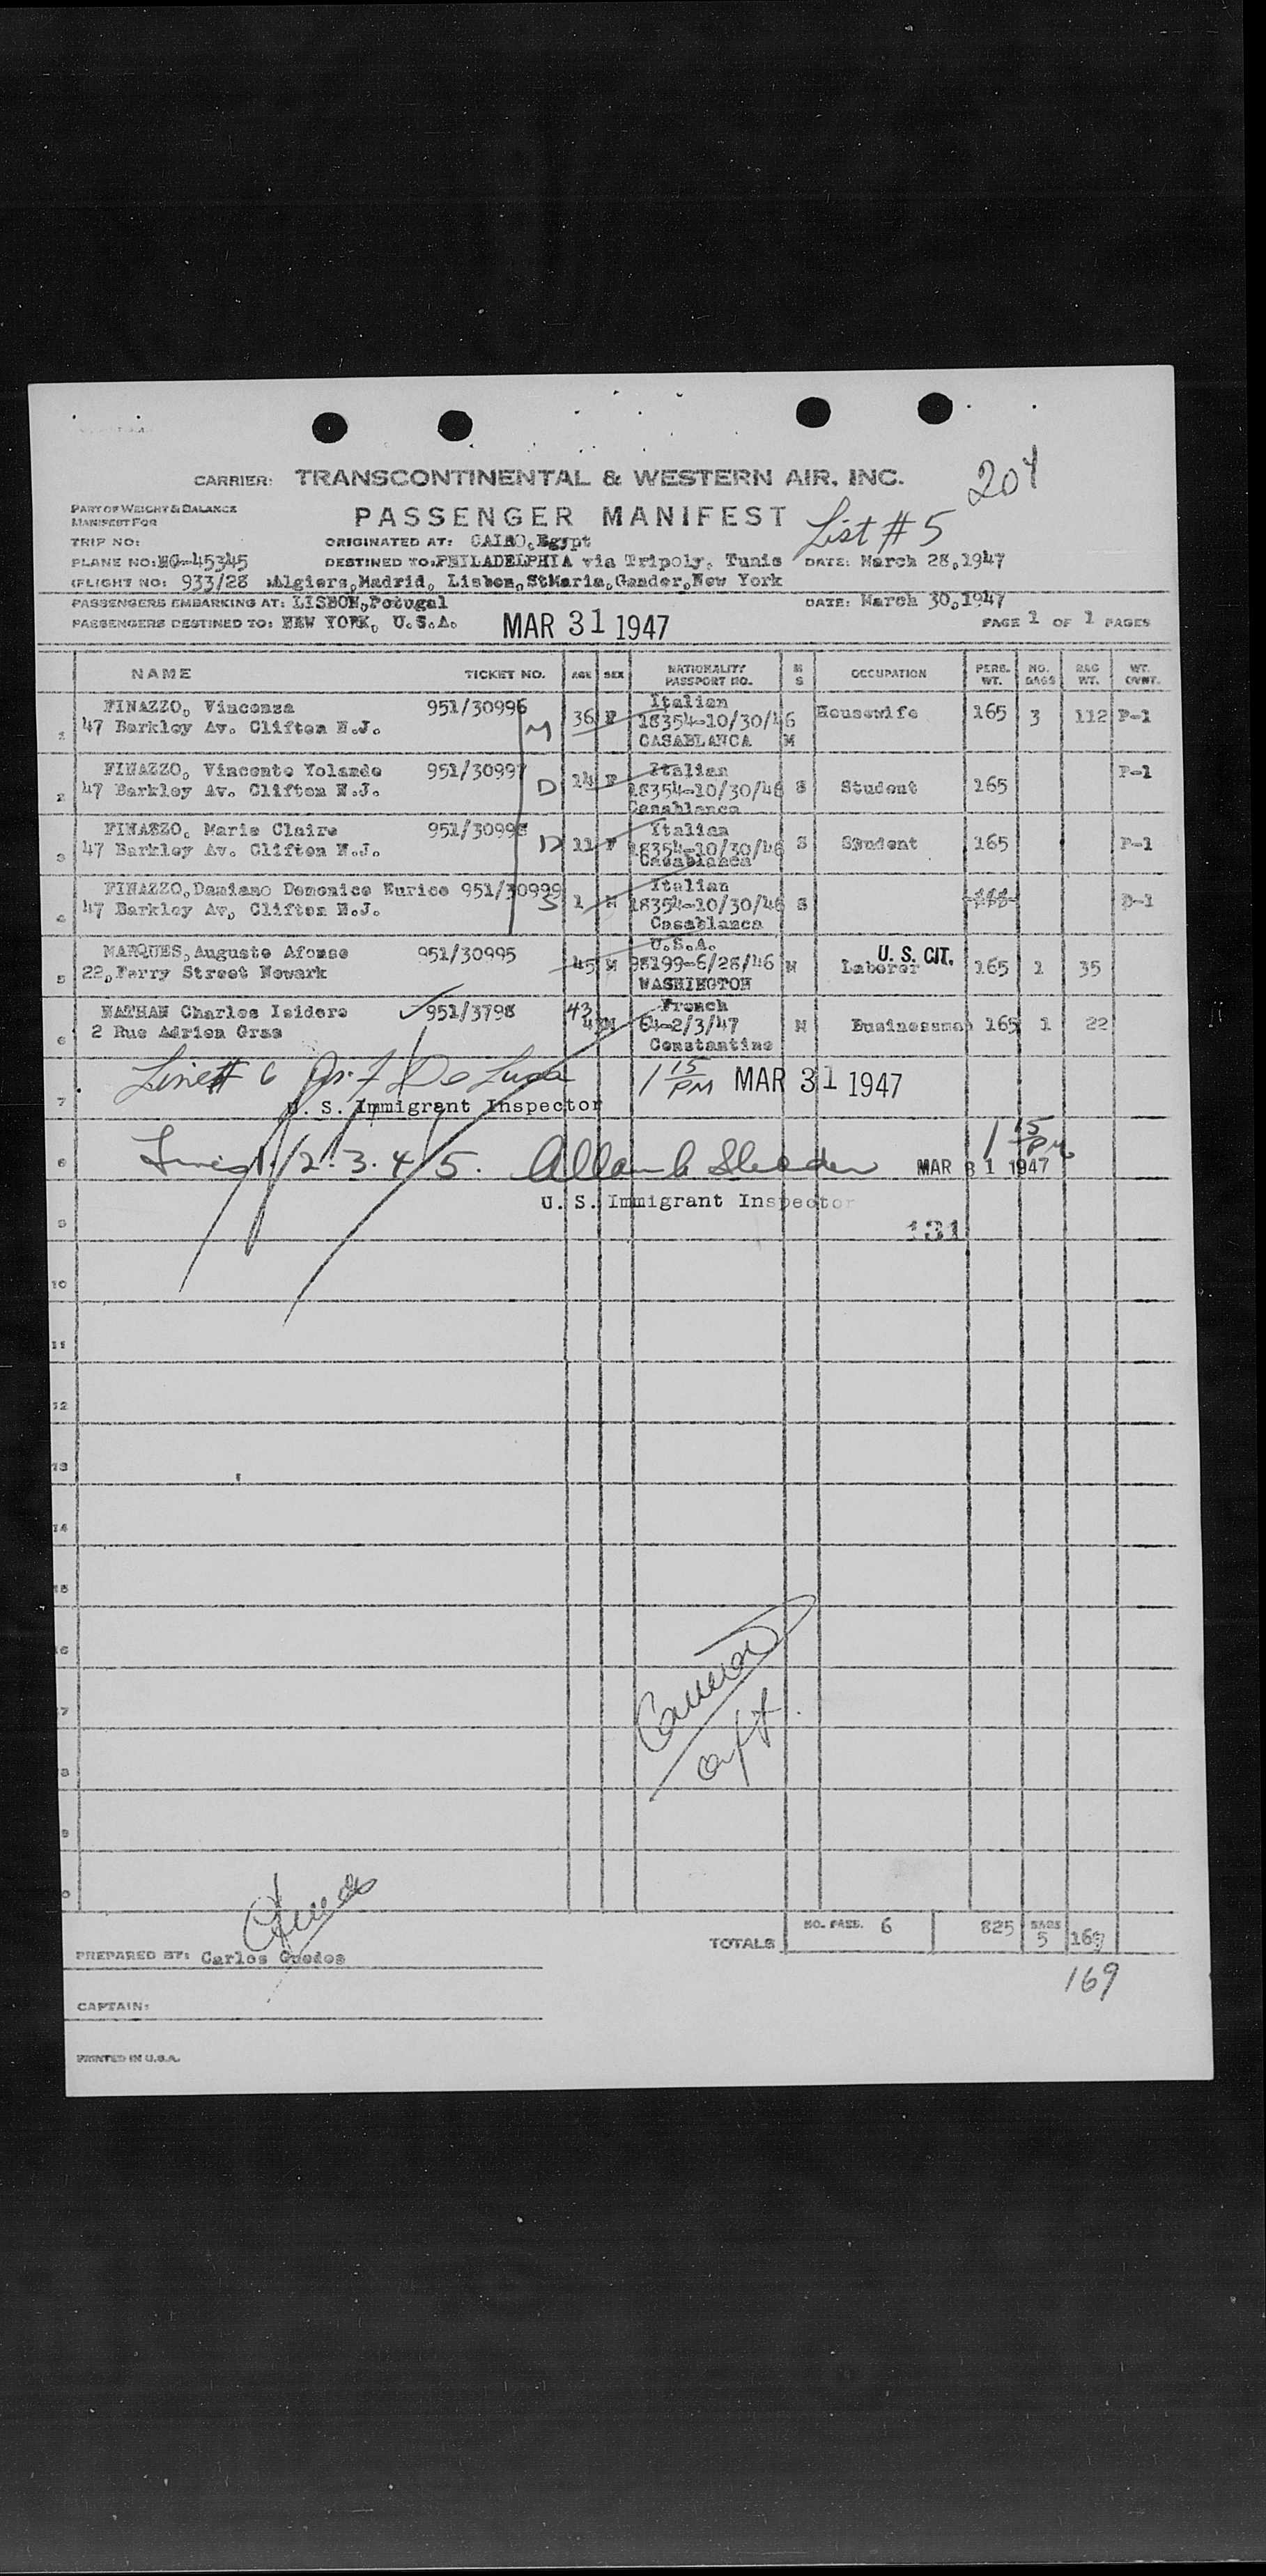 204
CARRIER: TRANSCONTINENTAL & WESTERN AIR, INC.
PART OF WEIGHT & BALANCE
MANIFEST FOR
PASSENGER MANIFEST List # 5
TRIP NO: ORIGINATED AT: CAIRO, Egypt
PLANE NO: -45345 DESTINED TO: PHILADELPHIA via Tripoly, Tunis DATE: March 28, 1947
FLIGHT NO: 933/28 Algiers, Madrid, Lisbon, StMaria, Gander, New York
PASSENGERS EMBARKING AT: LISBON, Potugal DATE: March 30, 1947
PASSENGERS DESTINED TO: NEW YORK, U.S.A. MAR 31 1947 PAGE 1 OF 1 PAGES
NAME TICKET NO. AGE SEX NATIONALITY PASSPORT NO. M S OCCUPATION PERS. WT. NO. BAGS BAG WT. WT. OVWT.
1 FINAZZO, Vincenza 951/30996 M 36 F Italian Housewife 165 3 112 P-1
47 Barkley Av. Clifton N.J. 18354-10/30/46
CASABLANCA M
2 FINAZZO, Vincente Yolande 951/30997 D 14 F Italian P-1
47 Barkley Av. Clifton N.J. 18354-10/30/46 S Student 165
Casablanca
3 FINAZZO, Marie Claire 951/30998 D 11 F Italian
47 Barkley Av. Clifton N.J. 18354-10/30/46 S Student 165 P-1
Casablanca
4 FINAZZO, Damiano Domenico Eurico 951/30999 S 1 M Italian
47 Barkley Av, Clifton N.J. 18354-10/30/46 S P-1
Casablanca
5 MARQUES, Augusto Afonso 951/30995 45 M U.S.A. U. S. CIT.
22, Ferry Street Newark 98199-6/28/46 M Laborer 165 1 35
WASHINGTON
6 NATHAN Charles Isidore 951/3798 43 M French
2 Rue Adrien Gras 64-2/3/47 M Businessman 165 1 22
Constantine
7 Line # 6 De Luca 1 15 PM MAR 31 1947
U. S. Immigrant Inspector
8 Lines 1. 2. 3. 4. 5. 1 15 PM MAR 31 1947
U. S. Immigrant Inspector
9 131
10
11
12
13
14
15
16
17
18
19
20
TOTALS NO. PASS. 6 825 BAGS 5 169
169
PREPARED BY: Carlos Guedes
CAPTAIN:
PRINTED IN U.S.A.